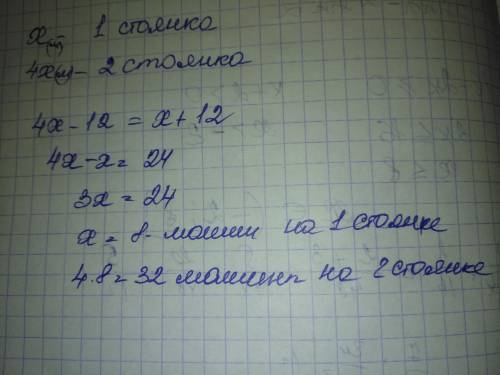 x(м) 1 стоянка
4x(м) - 2 стоянка
4x - 12 = x + 12
4x - x = 24
3x = 24
x = 8 - машин на 1 стоянке
4·8 = 32 машины на 2 стоянке